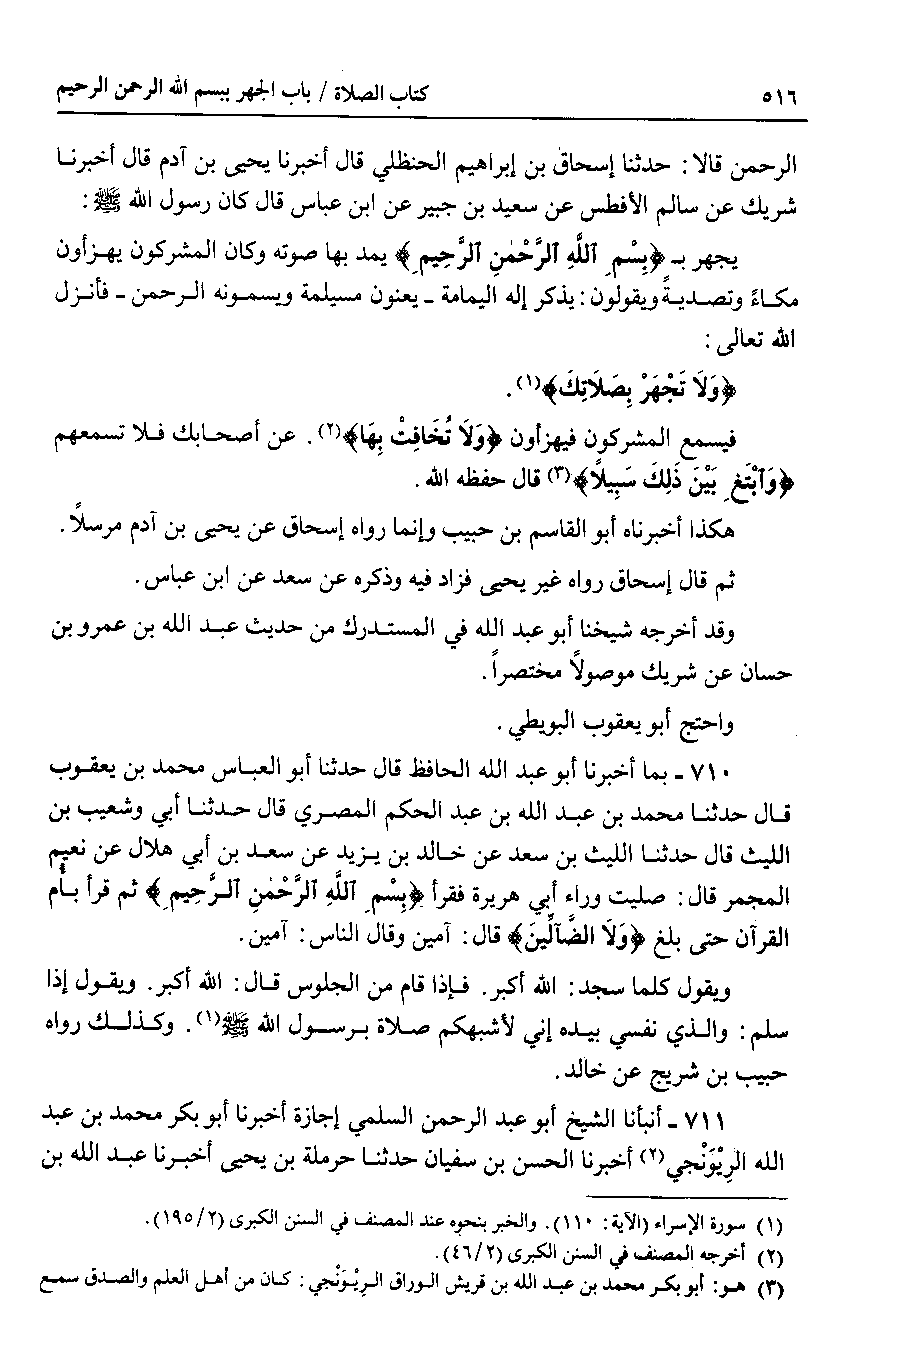 ٥١٦ كتاب الصلاة / باب الجهر ببسم الله الرحمن الرحيم
الرحمن قالا : حدثنا إسحاق بن إبراهيم الحنظلي قال أخبرنا يحيى بن آدم قال أخبرنا
شريك عن سالم الأفطس عن سعيد بن جبير عن ابن عباس قال كان رسول الله ﷺ :
يجهر بـ ﴿بِسْمِ ٱللَّهِ ٱلرَّحْمٰنِ ٱلرَّحِيمِ﴾ يمد بها صوته وكان المشركون يهزأون
مكاءً وتصديةً ويقولون : يذكر إله اليمامة ـ يعنون مسيلمة ويسمونه الرحمن ـ فأنزل
الله تعالى :
﴿وَلَا تَجْهَرْ بِصَلَاتِكَ﴾(١).
فيسمع المشركون فيهزأون ﴿وَلَا تُخَافِتْ بِهَا﴾(٢) . عن أصحابك فلا تسمعهم
﴿وَٱبْتَغِ بَيْنَ ذَلِكَ سَبِيلاً﴾(٣) قال حفظه الله .
هكذا أخبرناه أبو القاسم بن حبيب وإنما رواه إسحاق عن يحيى بن آدم مرسلاً.
ثم قال إسحاق رواه غير يحيى فزاد فيه وذكره عن سعد عن ابن عباس.
وقد أخرجه شيخنا أبو عبد الله في المستدرك من حديث عبد الله بن عمرو بن
حسان عن شريك موصولاً مختصراً.
واحتج أبو يعقوب البويطي .
٧١٠ ـ بما أخبرنا أبو عبد الله الحافظ قال حدثنا أبو العباس محمد بن يعقوب
قال حدثنا محمد بن عبد الله بن عبد الحكم المصري قال حدثنا أبي وشعيب بن
الليث قال حدثنا الليث بن سعد عن خالد بن يزيد عن سعد بن أبي هلال عن نعيم
المجمر قال : صليت وراء أبي هريرة فقرأ ﴿بِسْمِ ٱللَّهِ ٱلرَّحْمٰنِ ٱلرَّحِيمِ﴾ ثم قرأ بأُم
القرآن حتى بلغ ﴿وَلَا ٱلضَّآلِّينَ﴾ قال : آمين وقال الناس : آمين.
ويقول كلما سجد : الله أكبر. فإذا قام من الجلوس قال : الله أكبر. ويقول إذا
سلم : والذي نفسي بيده إني لأشبهكم صلاة برسول الله ﷺ(١). وكذلك رواه
حبيب بن شريح عن خالد.
٧١١ ـ أنبأنا الشيخ أبو عبد الرحمن السلمي إجازة أخبرنا أبو بكر محمد بن عبد
الله الرِيْوَنْجي(٢) أخبرنا الحسن بن سفيان حدثنا حرملة بن يحيى أخبرنا عبد الله بن
(١) سورة الإسراء (الآية : ١١٠). والخبر بنحوه عند المصنف في السنن الكبرى (٢/١٩٥).
(٢) أخرجه المصنف في السنن الكبرى (٢/٤٦).
(٣) هو: أبو بكر محمد بن عبد الله بن قريش الوراق الرِيْوَنْجي : كان من أهل العلم والصدق سمع